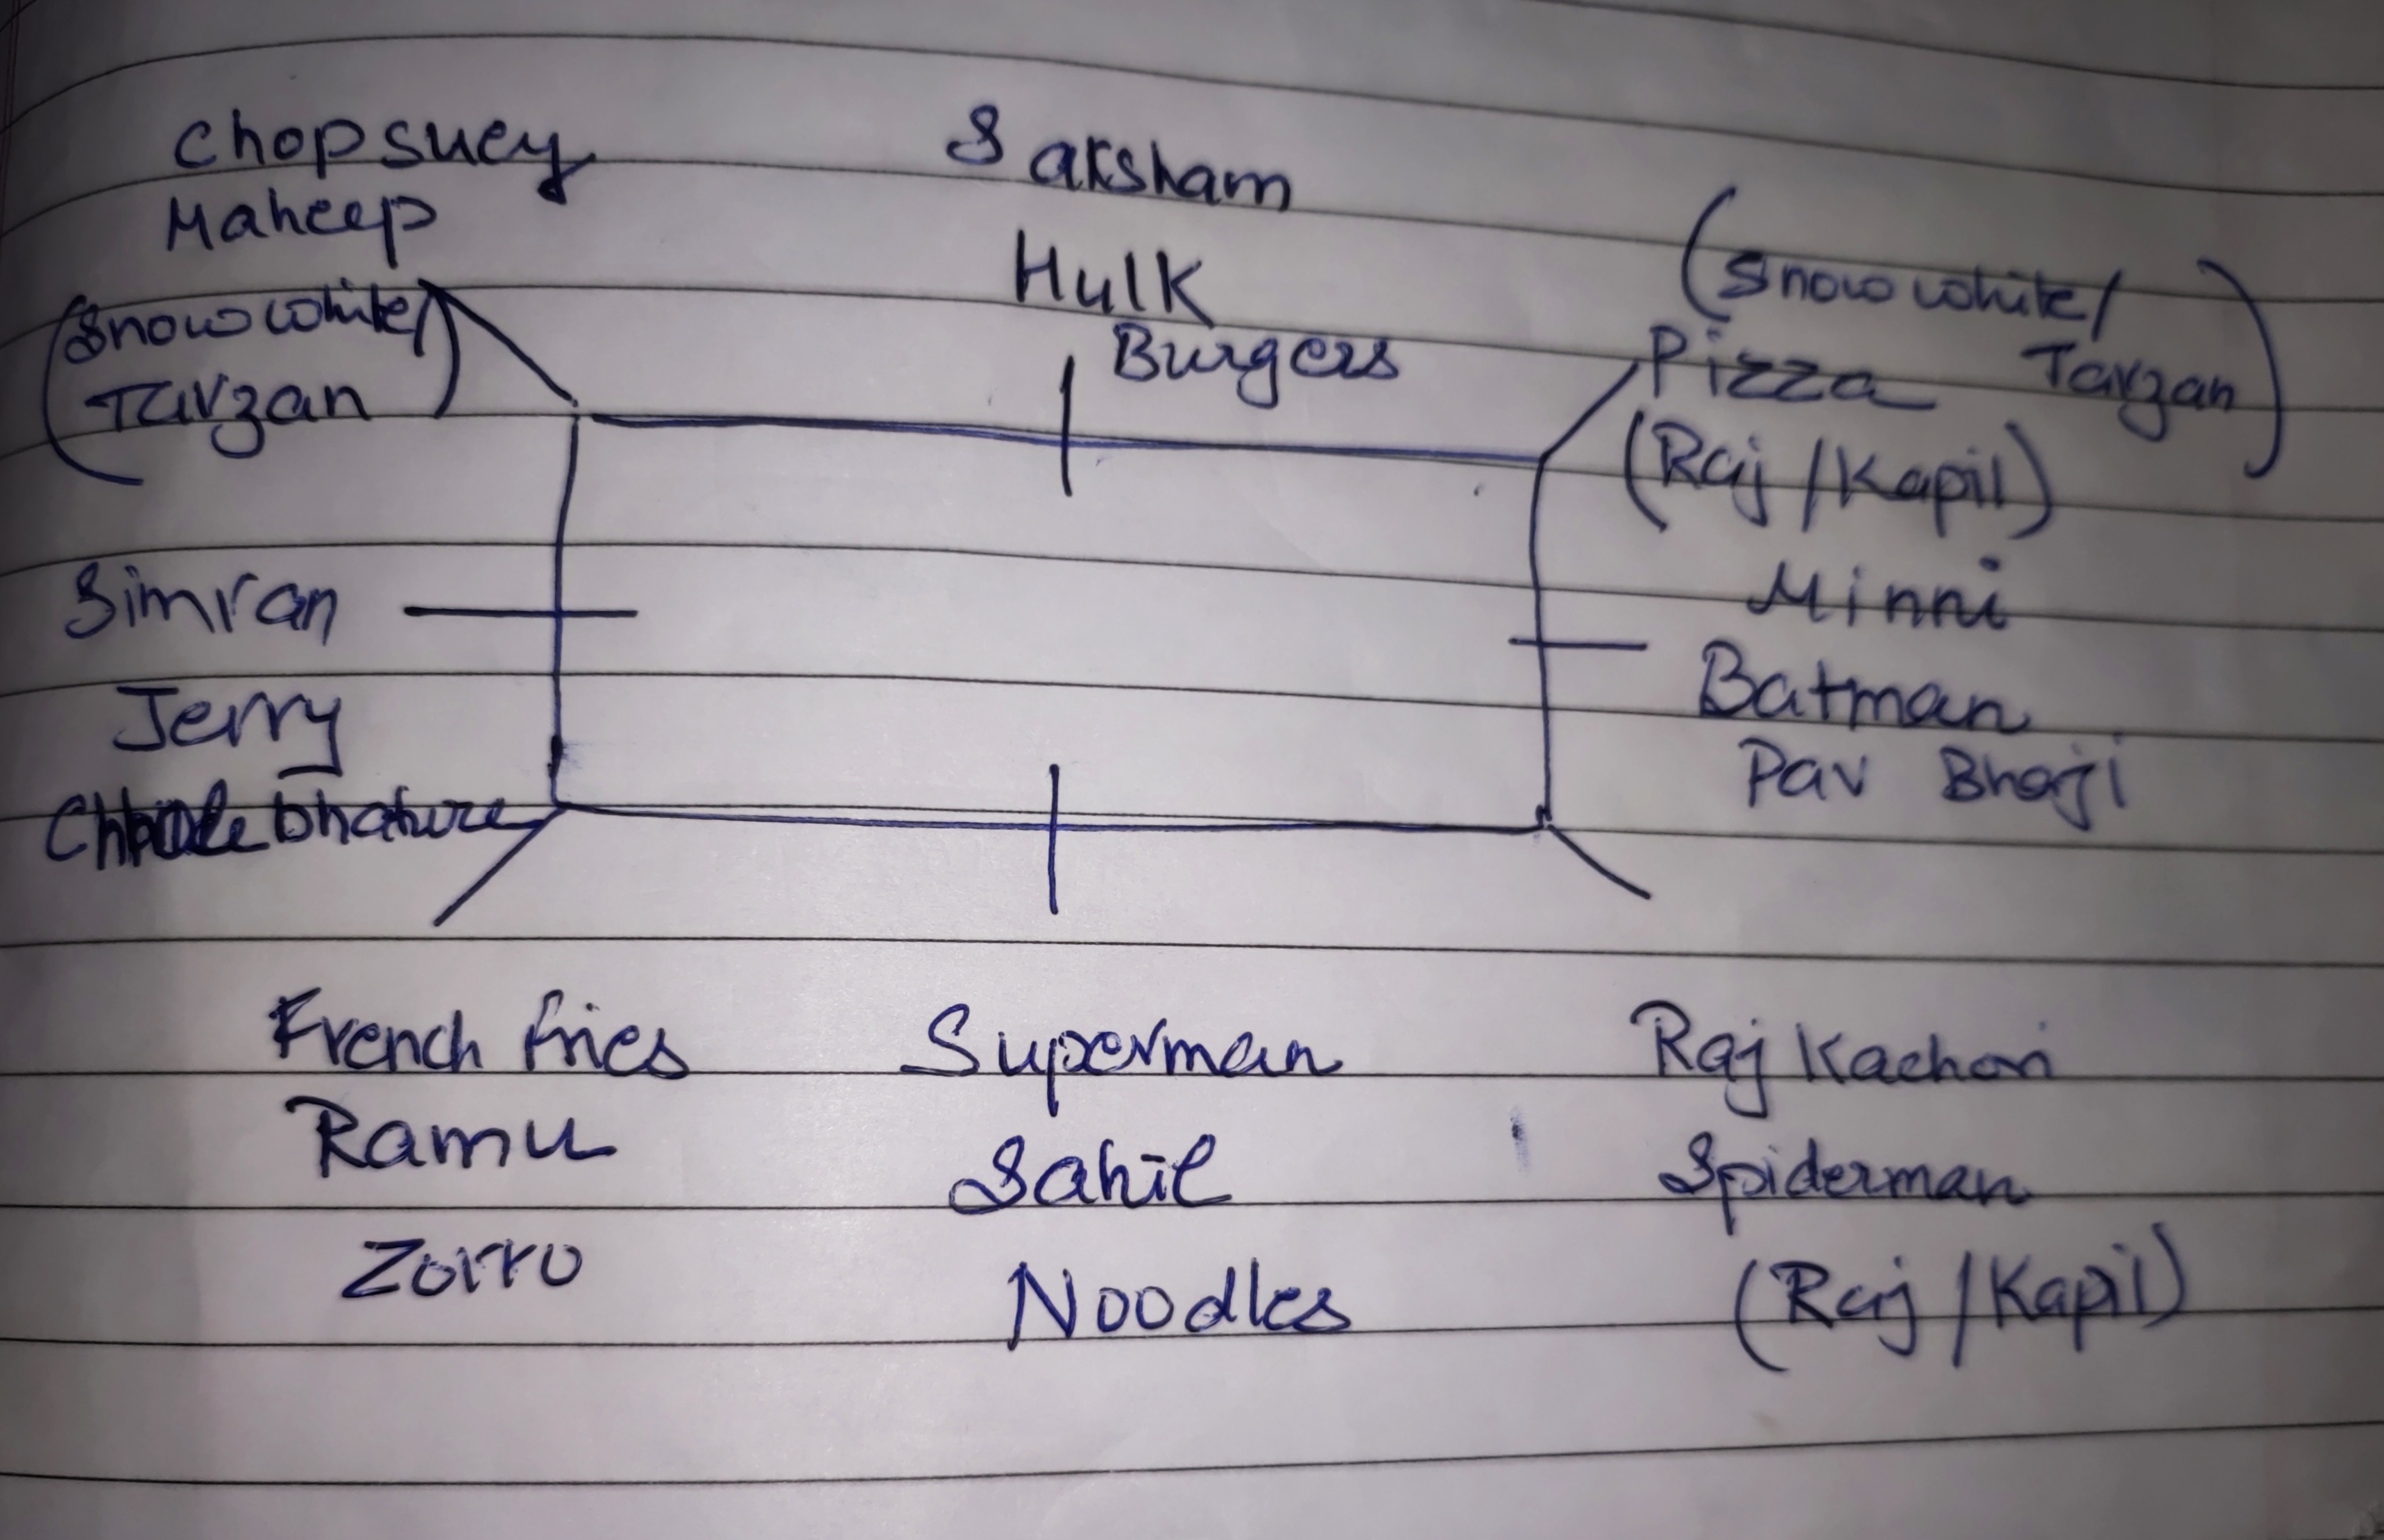 Chopsuey
Maheep
(Snow white/
Tarzan)
Saksham
Hulk
Burgers
(Snow white/
Tarzan)
Pizza
(Raj/Kapil)
Simran
Jerry
Chhole bhature
Minni
Batman
Pav Bhaji
French fries
Ramu
Zorro
Superman
Sahil
Noodles
Raj Kachori
Spiderman
(Raj/Kapil)